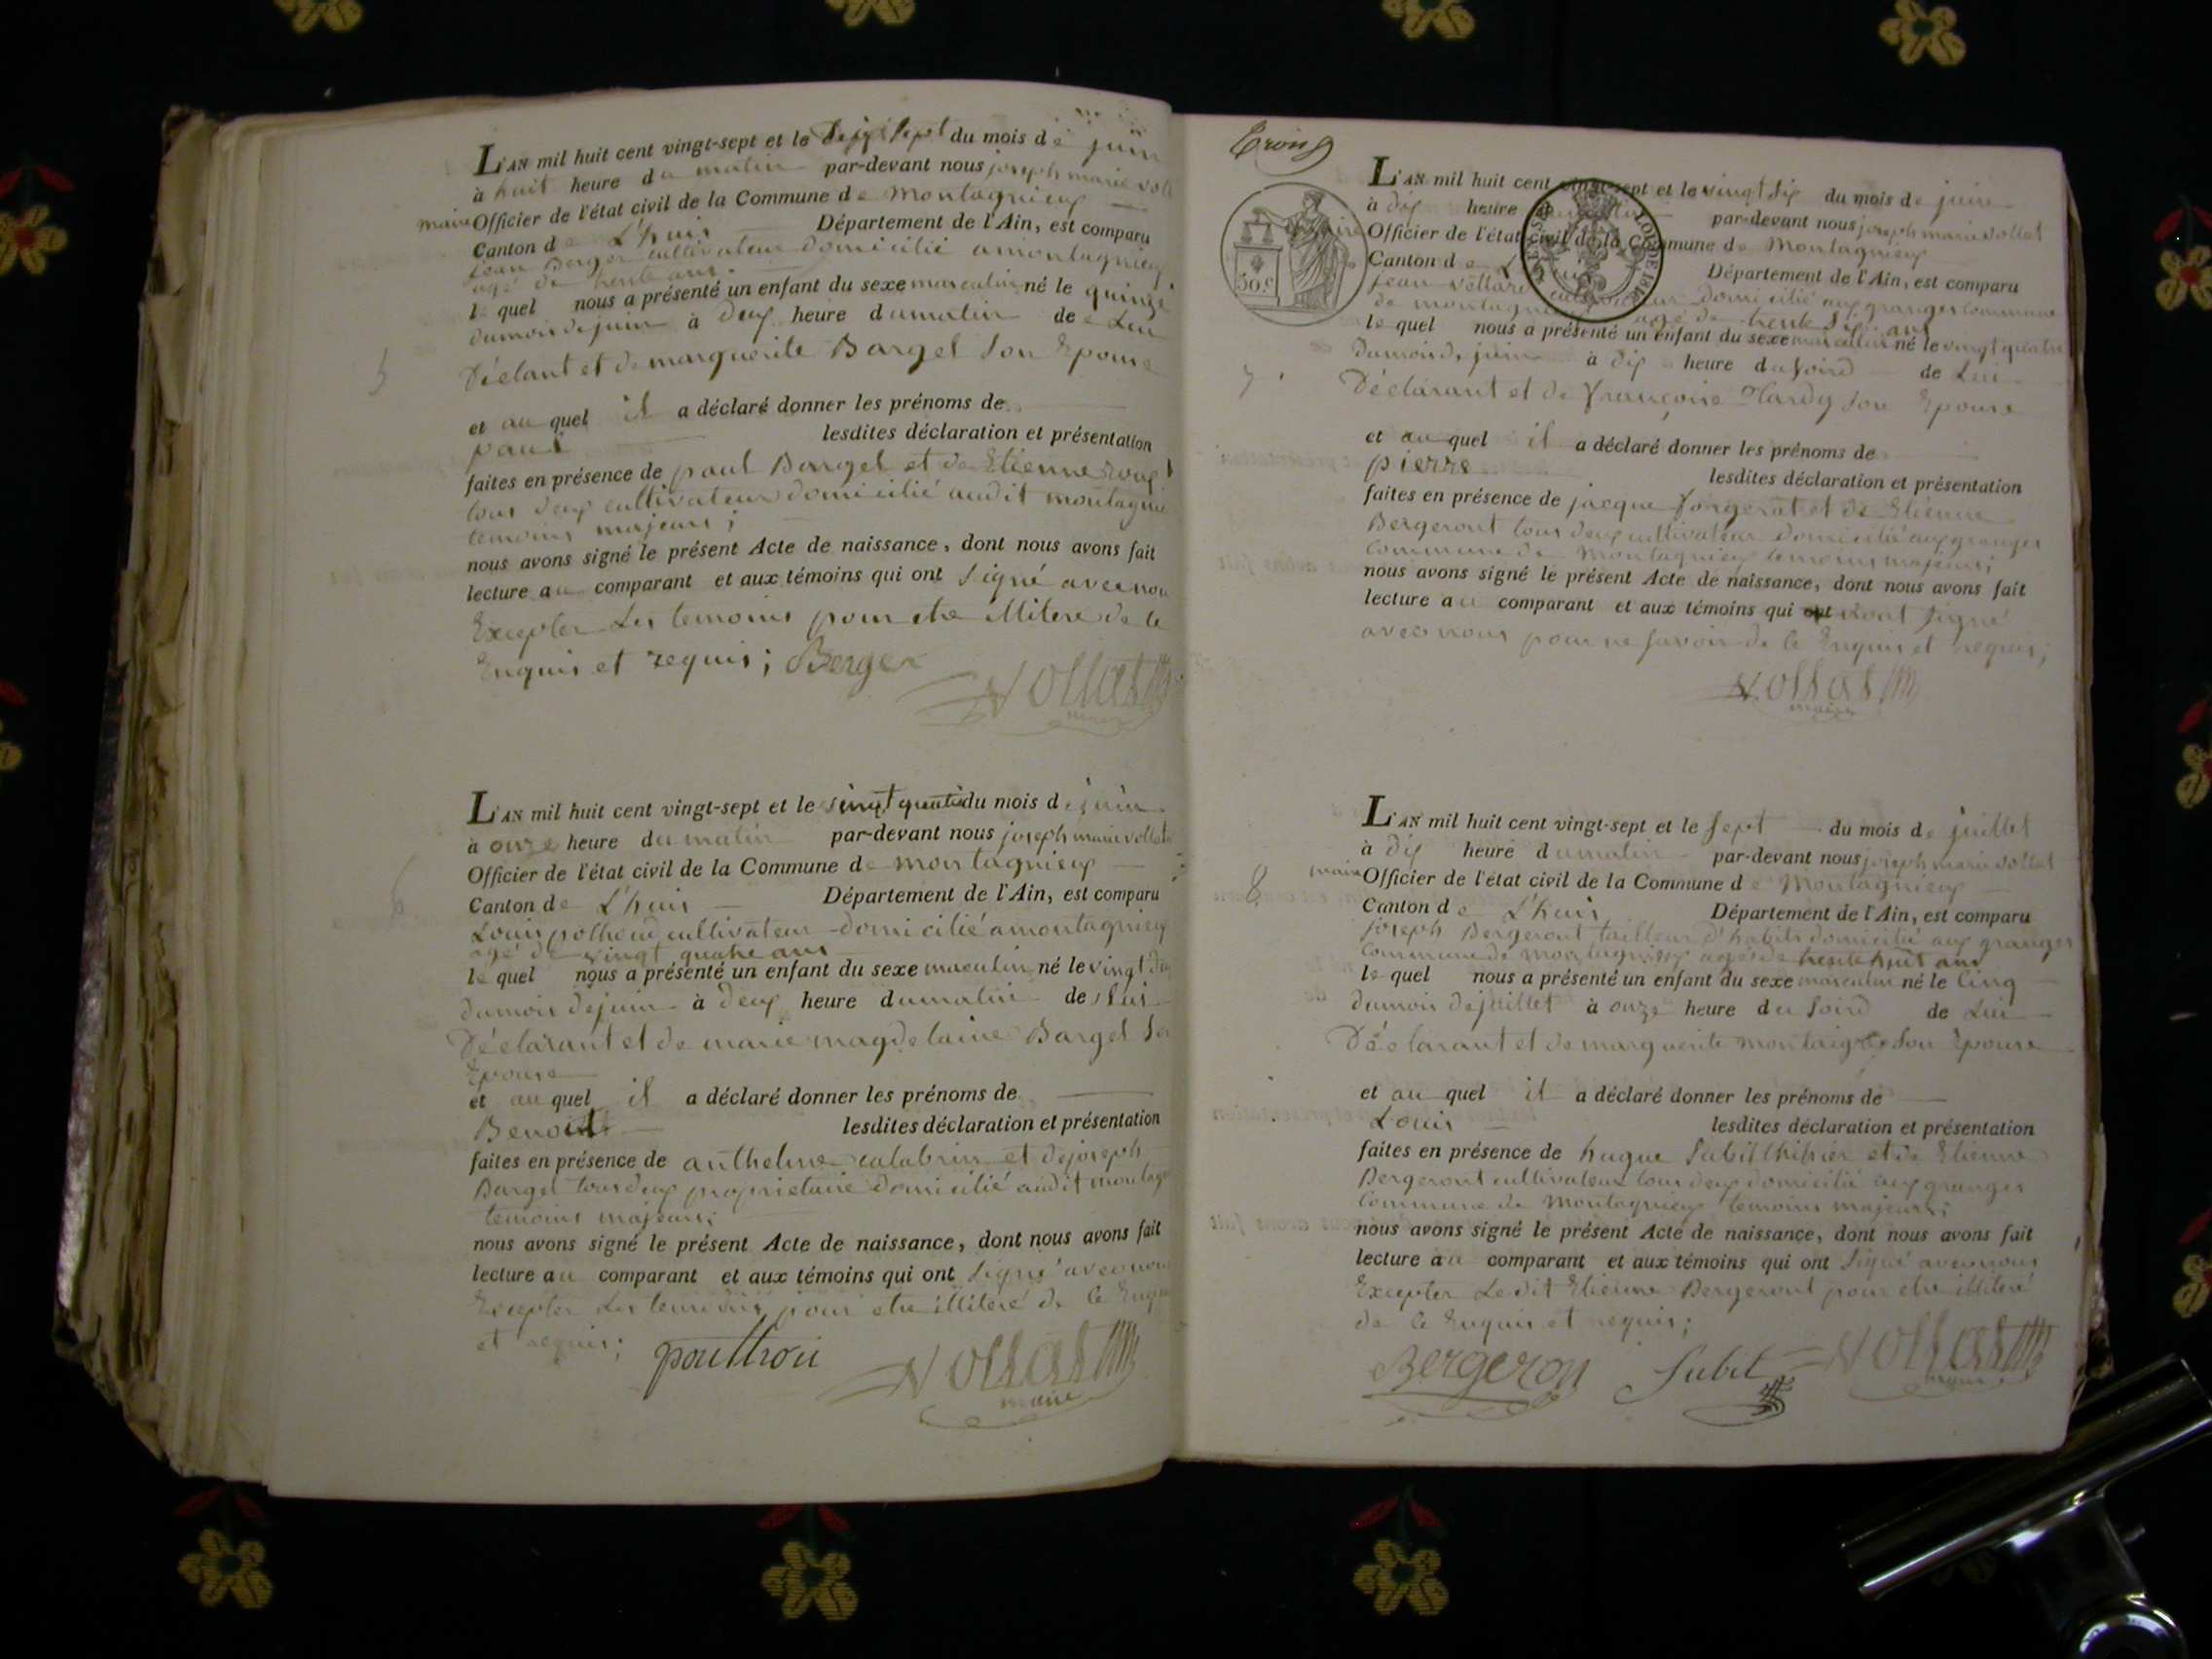 L'AN mil huit cent vingt-sept et le dix sept du mois de juin
à huit heure du matin par-devant nous joseph marie
maire Officier de l'état civil de la Commune de Montagnieux
Canton de L'huis Département de l'Ain, est comparu
jean Berger cultivateur domicilié a montagnieux
agé de trente ans
le quel nous a présenté un enfant du sexe masculin né le quinze
du mois de juin à deux heure du matin de Lui
Déclarant et de marguerite Barget son Epouse
5
et au quel il a déclaré donner les prénoms de
paul lesdites déclaration et présentation
faites en présence de paul Barget et de Etienne
tous deux cultivateur domicilié audit montagnieu
temoins majeurs ;
nous avons signé le présent Acte de naissance, dont nous avons fait
lecture au comparant et aux témoins qui ont signé avec nou
Excepter Les temoins pour etre illitere de le
Enquis et requis ; Berger
Vollat
maire
L'AN mil huit cent vingt-sept et le vingt quatre du mois de juin
à onze heure du matin par-devant nous joseph marie vollat
Officier de l'état civil de la Commune de montagnieux
6
Canton de L'huis Département de l'Ain, est comparu
Louis cultivateur domicilié a montagnieux
agé de vingt quatre ans
le quel nous a présenté un enfant du sexe masculin né le vingt
du mois de juin à deux heure du matin de lui
Déclarant et de marie magdelaine Barget
Epouse
et au quel il a déclaré donner les prénoms de
Benoit lesdites déclaration et présentation
faites en présence de anthelme calabrin et de joseph
Barget tous deux proprietaire domicilié audit
temoins majeurs ;
nous avons signé le présent Acte de naissance, dont nous avons fait
lecture au comparant et aux témoins qui ont signé avec nou
Excepter Les temoins pour etre illiteré de le
et requis ; pouthon
Vollat
maire
L'AN mil huit cent vingt-sept et le vingt six du mois de juin
à dix heure par-devant nous joseph marie vollat
50.c
Officier de l'état civil de la Commune de Montagnieux
Canton de L'huis Département de l'Ain, est comparu
jean vollat cultivateur domicilié aux granges commune
de montagnieux agé de trente six ans
le quel nous a présenté un enfant du sexe masculin né le vingt quatre
du mois de juin à dix heure du soird de Lui
7
Déclarant et de françoise Hardy son Epouse
et au quel il a déclaré donner les prénoms de
pierre lesdites déclaration et présentation
faites en présence de jacque forgerot et de Etienne
Bergeront tous deux cultivateur domicilié aux granges
commune de Montagnieux temoins majeurs ;
nous avons signé le présent Acte de naissance, dont nous avons fait
lecture au comparant et aux témoins qui ont signé
avec nous pour ne savoir de le Enquis et requis ;
Vollat
maire
L'AN mil huit cent vingt-sept et le sept du mois de juillet
à dix heure du matin par-devant nous joseph marie vollat
8
maire Officier de l'état civil de la Commune de Montagnieux
Canton de L'huis Département de l'Ain, est comparu
joseph Bergeront tailleur d'habits domicilié aux granges
commune de montagnieux agé de trente huit ans
le quel nous a présenté un enfant du sexe masculin né le cinq
du mois de juillet à onze heure du soird de Lui
Déclarant et de marguerite son Epouse
et au quel il a déclaré donner les prénoms de
Louis lesdites déclaration et présentation
faites en présence de hugue Subit et de Etienne
Bergeront cultivateur tous deux domicilié aux granges
commune de Montagnieux temoins majeurs ;
nous avons signé le présent Acte de naissance, dont nous avons fait
lecture au comparant et aux témoins qui ont signé avec nous
Excepter Ledit Etienne Bergeront pour etre illiteré
de le Enquis et requis ;
Bergeron Subit Vollat
maire